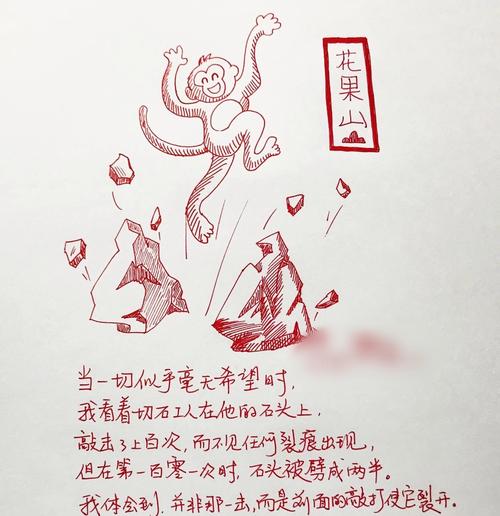 花果山
当一切似乎毫无希望时,
我看着切石工人在他的石头上,
敲击了上百次,而不见任何裂痕出现,
但在第一百零一次时,石头被劈成两半。
我体会到,并非那一击,而是前面的敲打使它裂开。